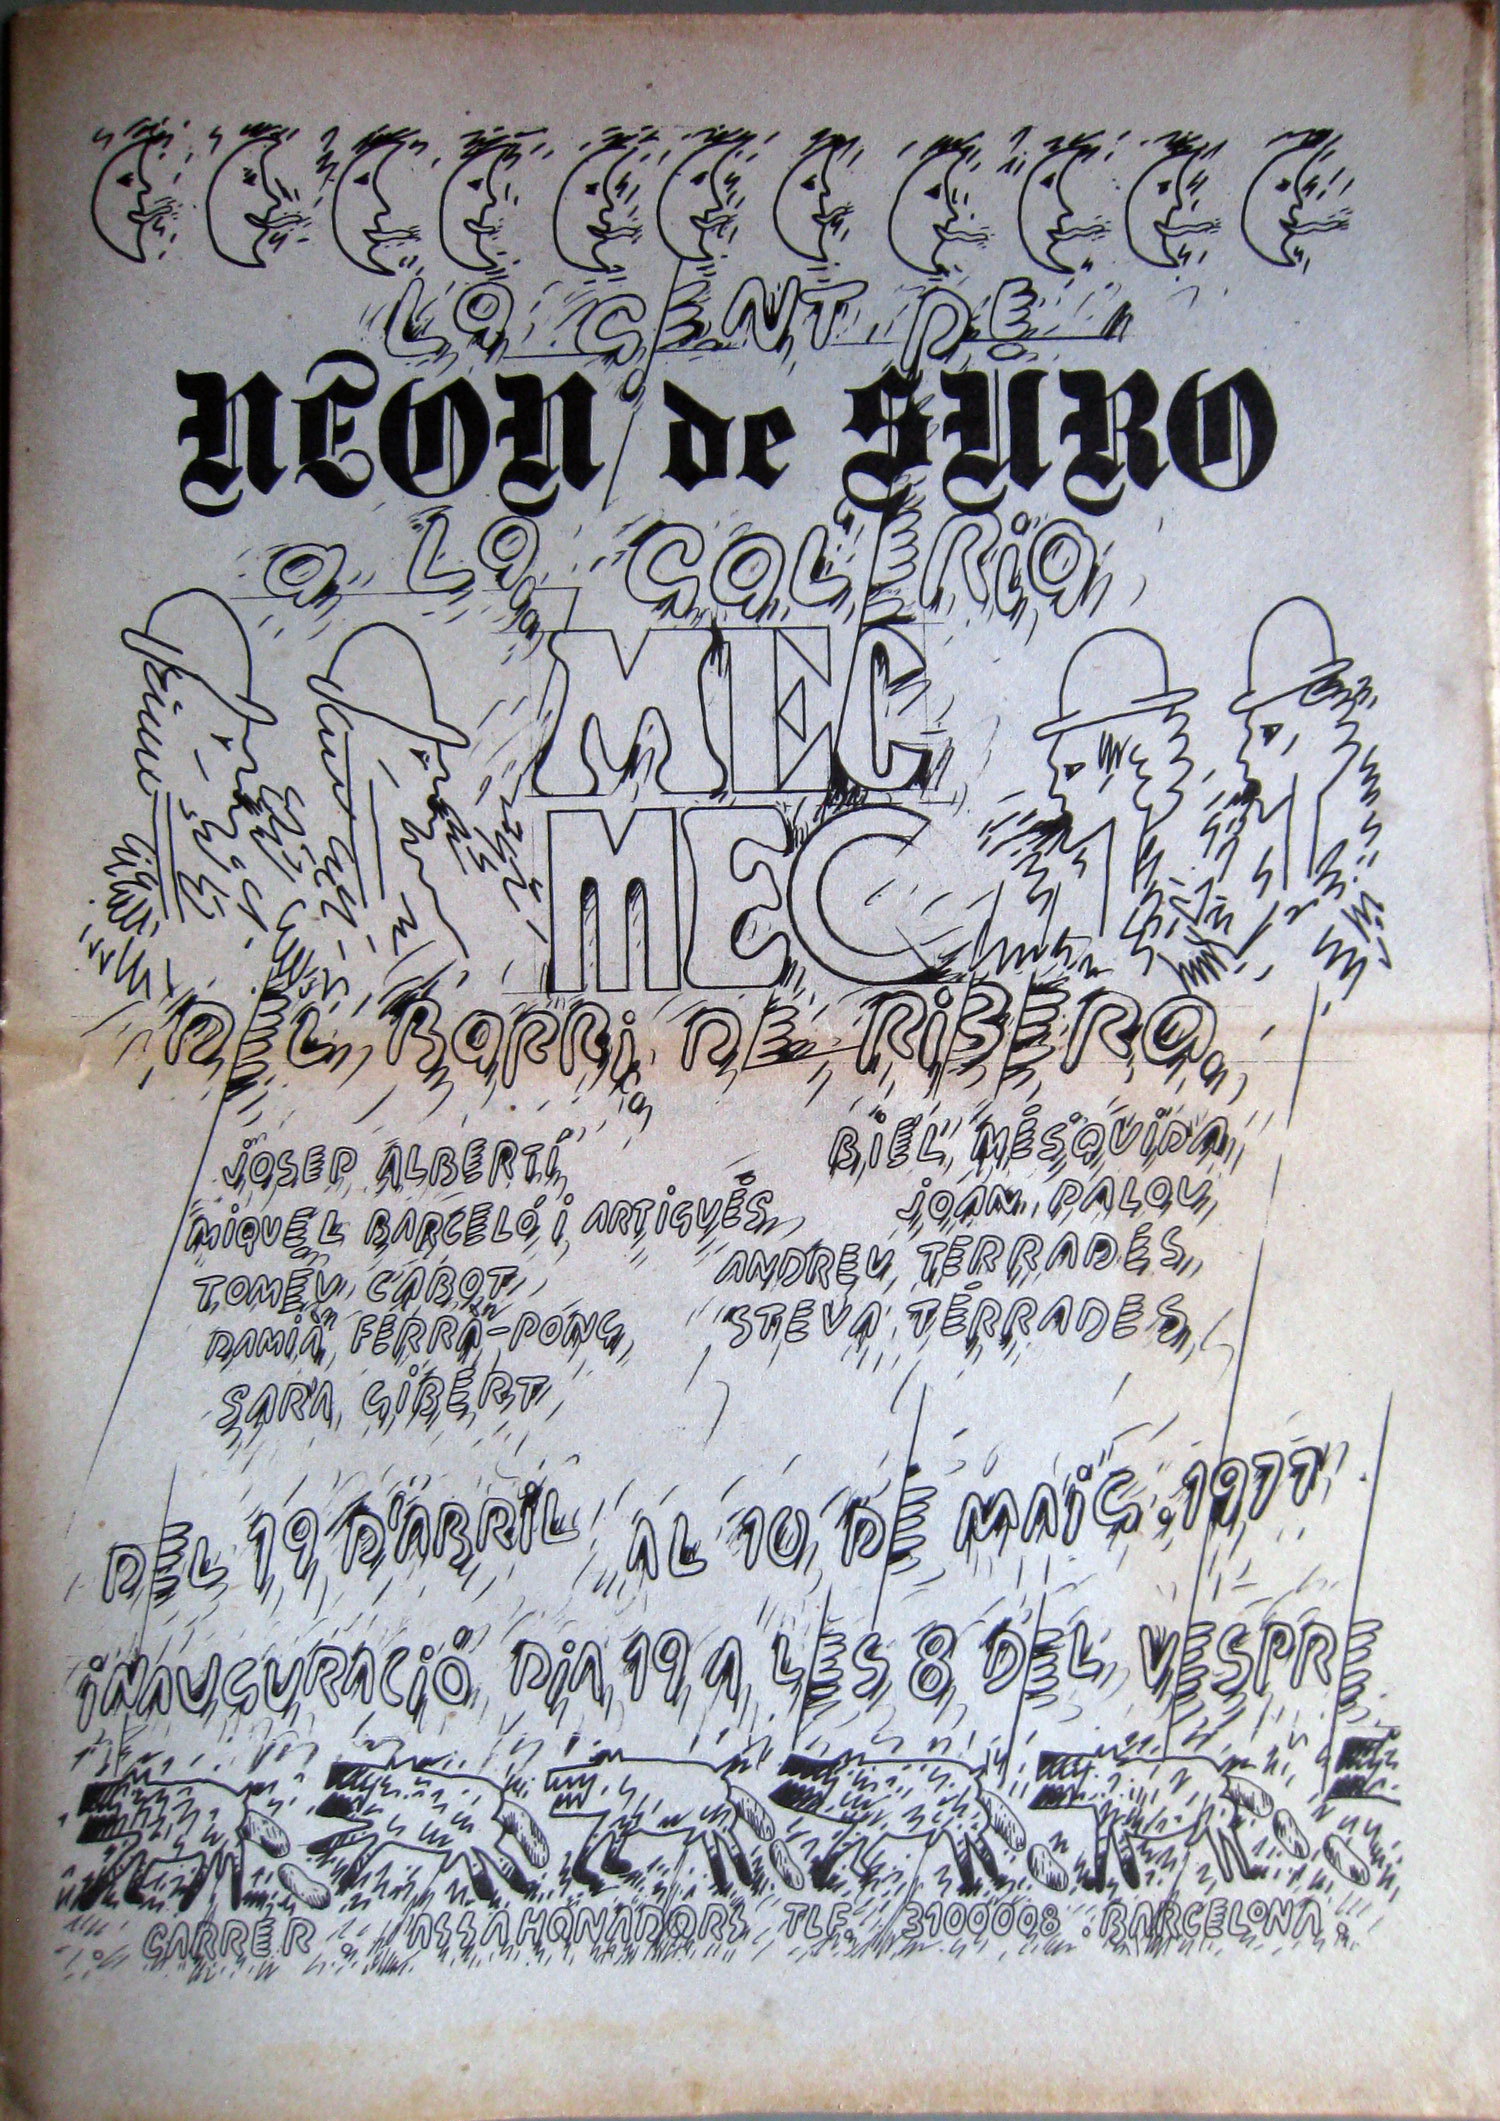 La GENT DE
NEON de SURO
a La GaLERia
MEC
MEC
DEL BaRRi DE RiBERa
JOSEP ALBERTÍ
BIEL MESQUIDA
MIQUEL BARCELÓ i ARTIGUES
JOAN PALOU
TOMEU CABOT
ANDREU TERRADES
DAMIÀ FERRÀ-PONÇ
STEVA TERRADES
SARA GIBERT
DEL 19 D'ABRIL AL 10 DE MAIG. 1977
iNAUGURACIÓ DIA 19 A LES 8 DEL VESPRE
CARRER ASSAHONADORS TLF. 3100008. BARCELONA.